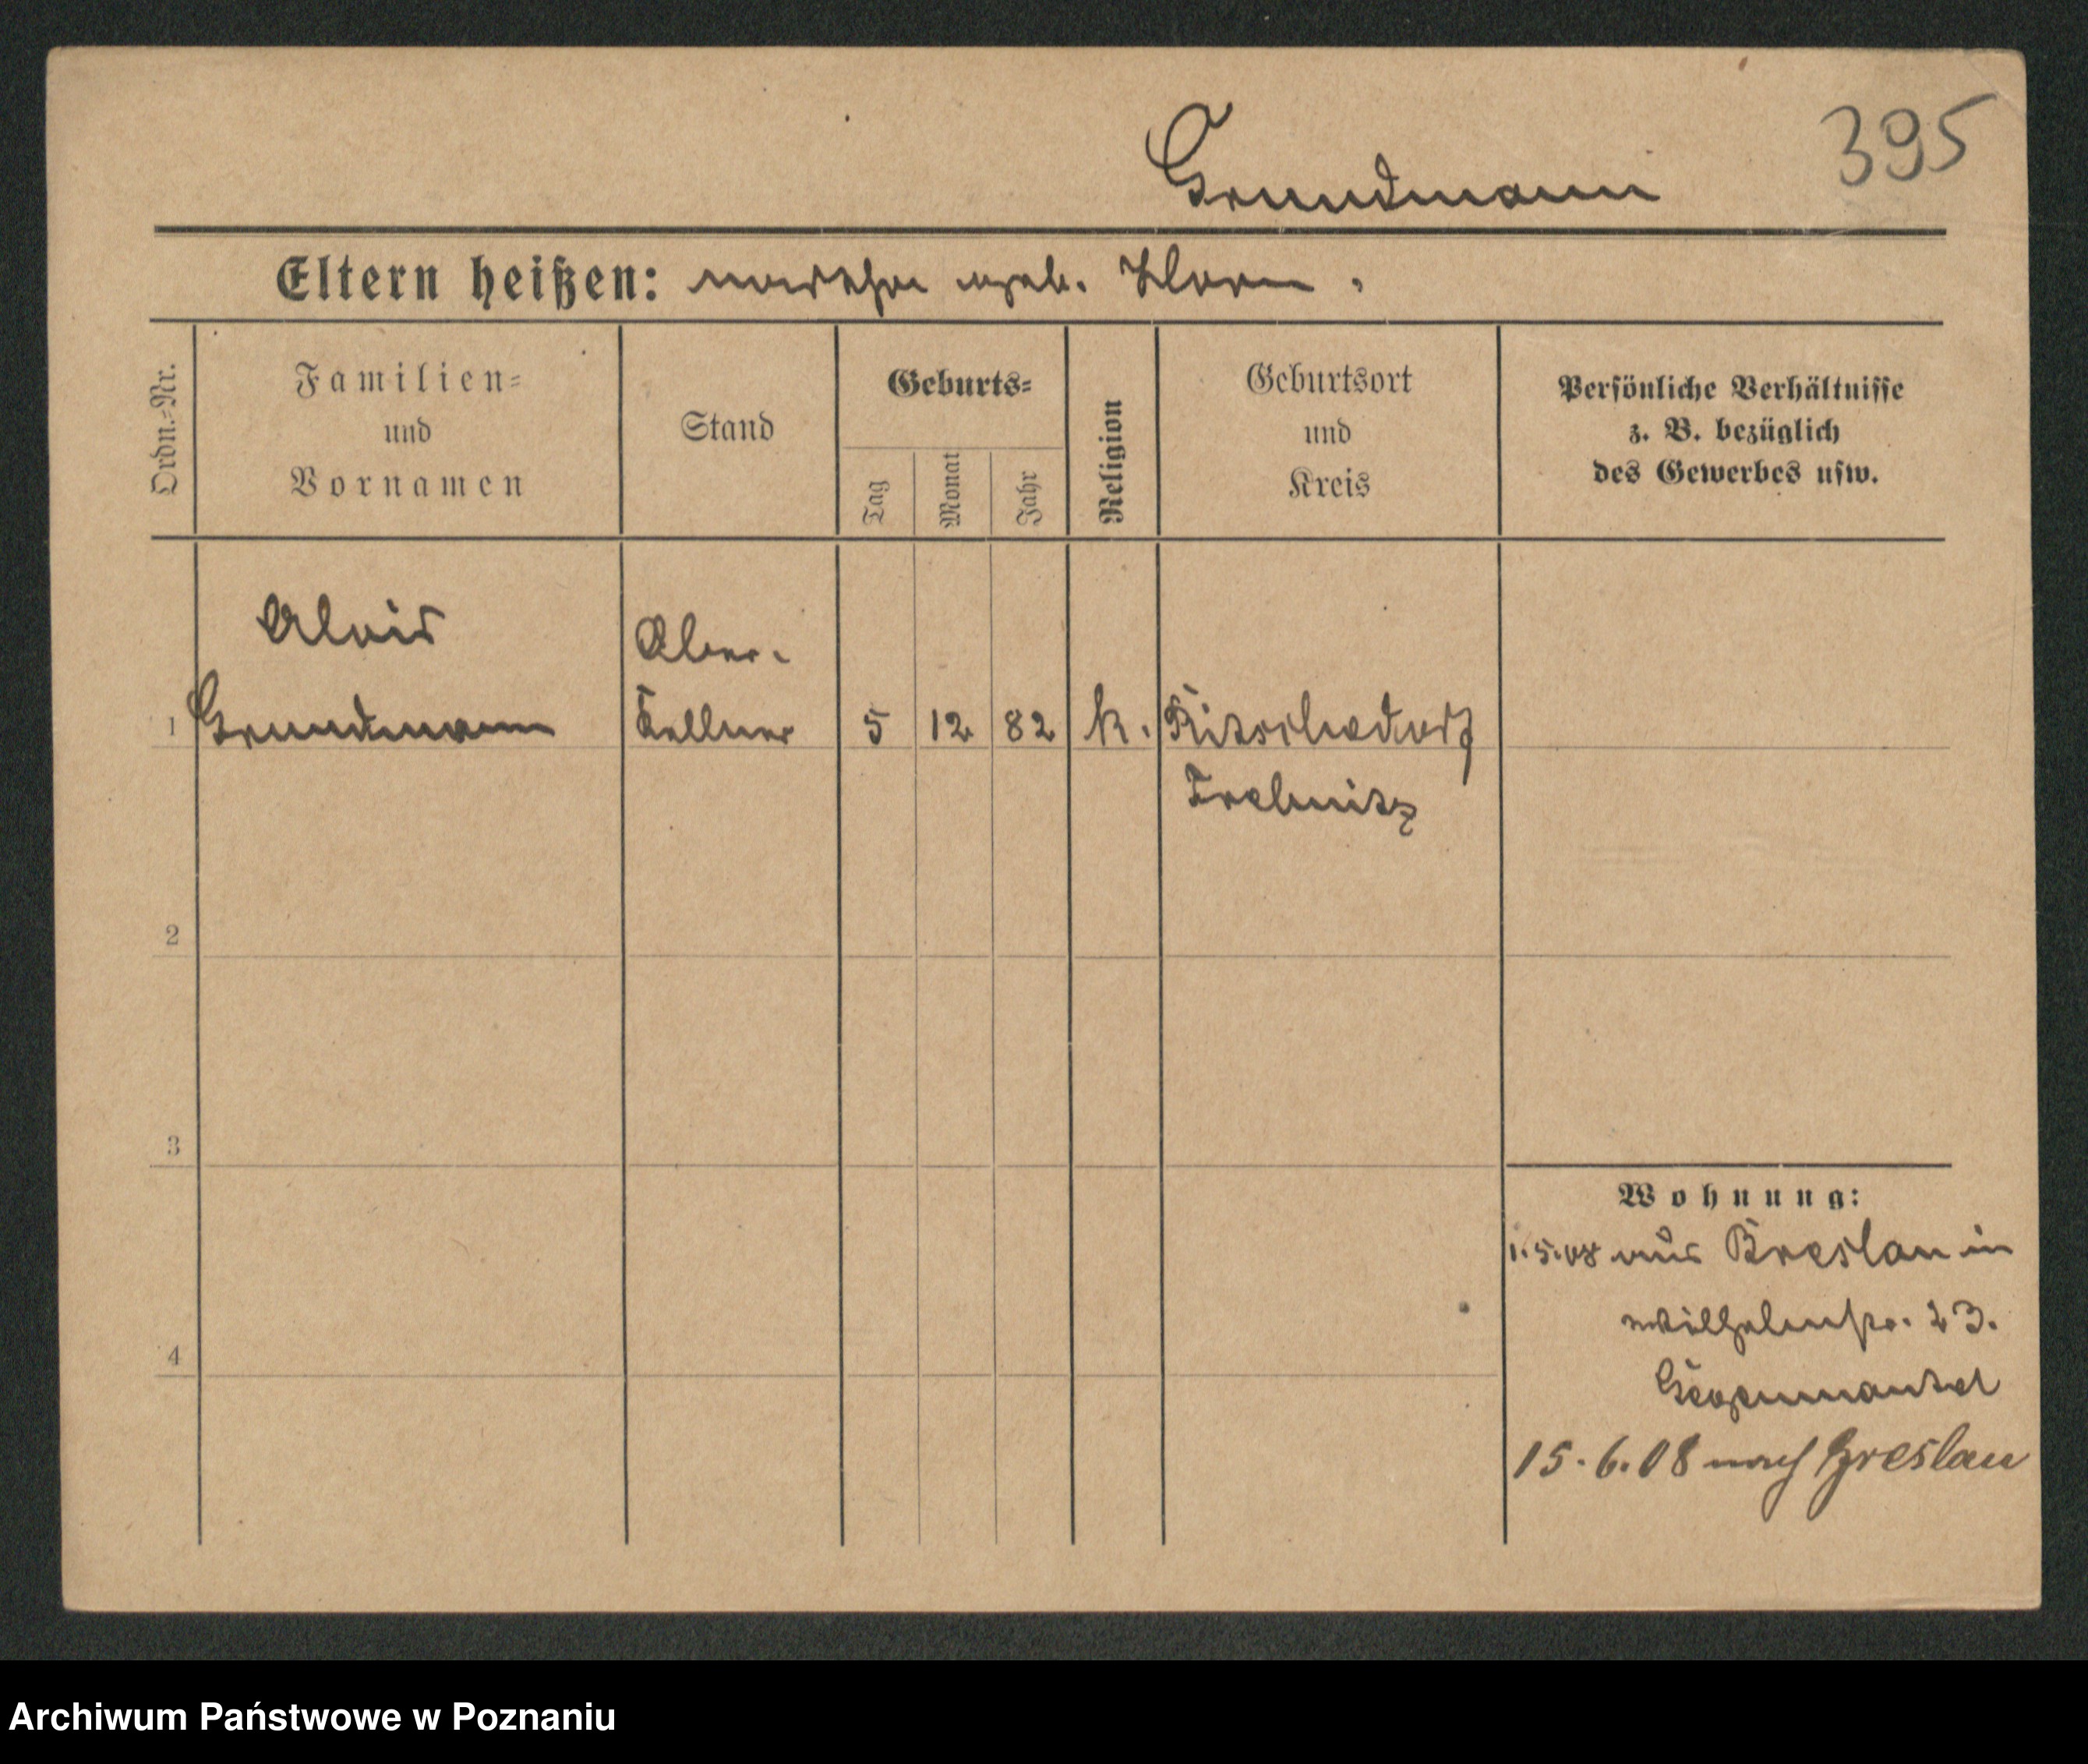 Grundmann 395
Eltern heißen: geb. Klara.
Ordn.-Nr. Familien- und Vornamen Stand Geburts- Tag Monat Jahr Religion Geburtsort und Kreis Persönliche Verhältnisse z. B. bezüglich des Gewerbes usw.
Alois Ober-
1 Grundmann Kellner 5 12 82 k.
Trebnitz
2
3
Wohnung:
1.5.08 aus Breslau in
Wilhelmstr. 23.
4
15.6.08 nach Breslau
Archiwum Państwowe w Poznaniu